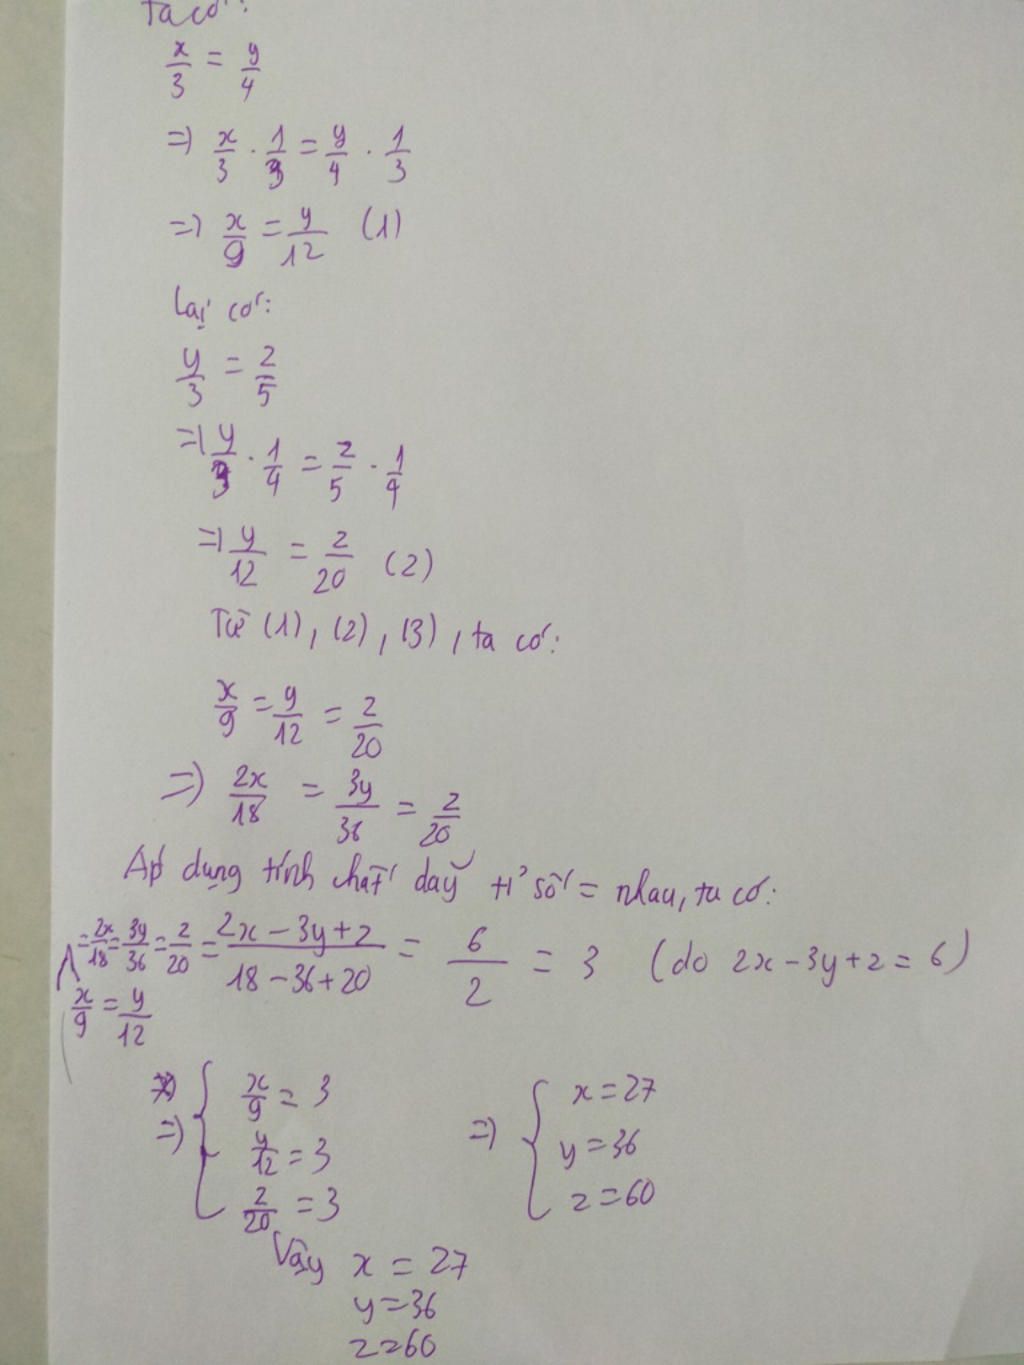 Ta có:
x/3 = y/4
=> x/3 . 1/3 = y/4 . 1/3
=> x/9 = y/12 (1)
Lại có:
y/3 = z/5
=> y/3 . 1/4 = z/5 . 1/4
=> y/12 = z/20 (2)
Từ (1), (2), (3), ta có:
x/9 = y/12 = z/20
=> 2x/18 = 3y/36 = z/20
Áp dụng tính chất dãy tỉ số = nhau, ta có:
= 2x/18 = 3y/36 = z/20 = (2x - 3y + z)/(18 - 36 + 20) = 6/2 = 3 (do 2x - 3y + z = 6)
x/9 = y/12
=> { x/9 = 3 => { x = 27
y/12 = 3 y = 36
z/20 = 3 z = 60
Vậy x = 27
y = 36
z = 60